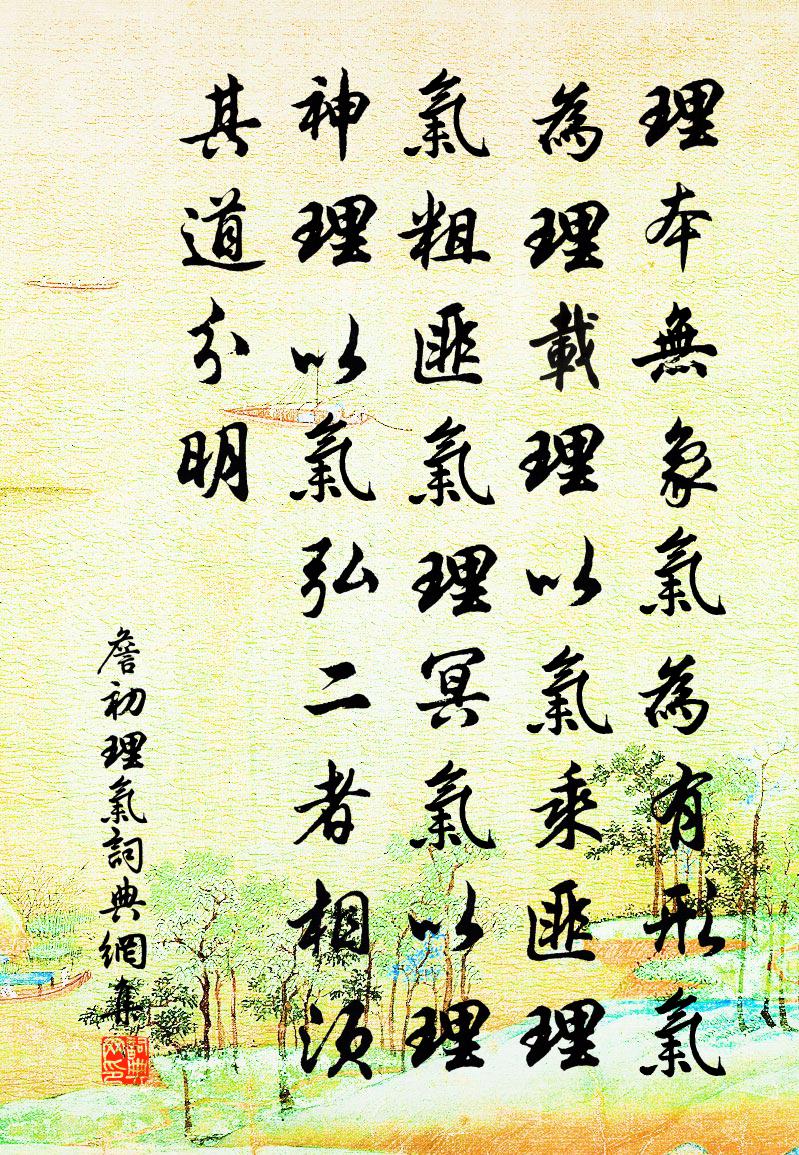 理本無象氣為有形氣
為理載理以氣乘匪理
氣粗匪氣理冥氣以理
神理以氣弘二者相須
其道分明
詹初理氣詞典網集